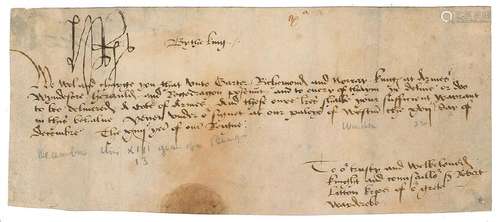 By the king
We wol and charge you that unto Garter Richemond and Norray kings at Armes
Wyndesore herauld and Rougedragon p'sevant and to every of theim ye delive' or do
to be delivered A cote of Armes And these oure l'res shalbe your sufficient warrant
in this behalve Yeven under o' signet at our paleys of Westm' the day of
decembre The yere of our Reigne
december this XIII year
13
To o' trusty and welbeloved
knight and counsaillo' S' Robert
Litton keper of o' grete
Warderobe